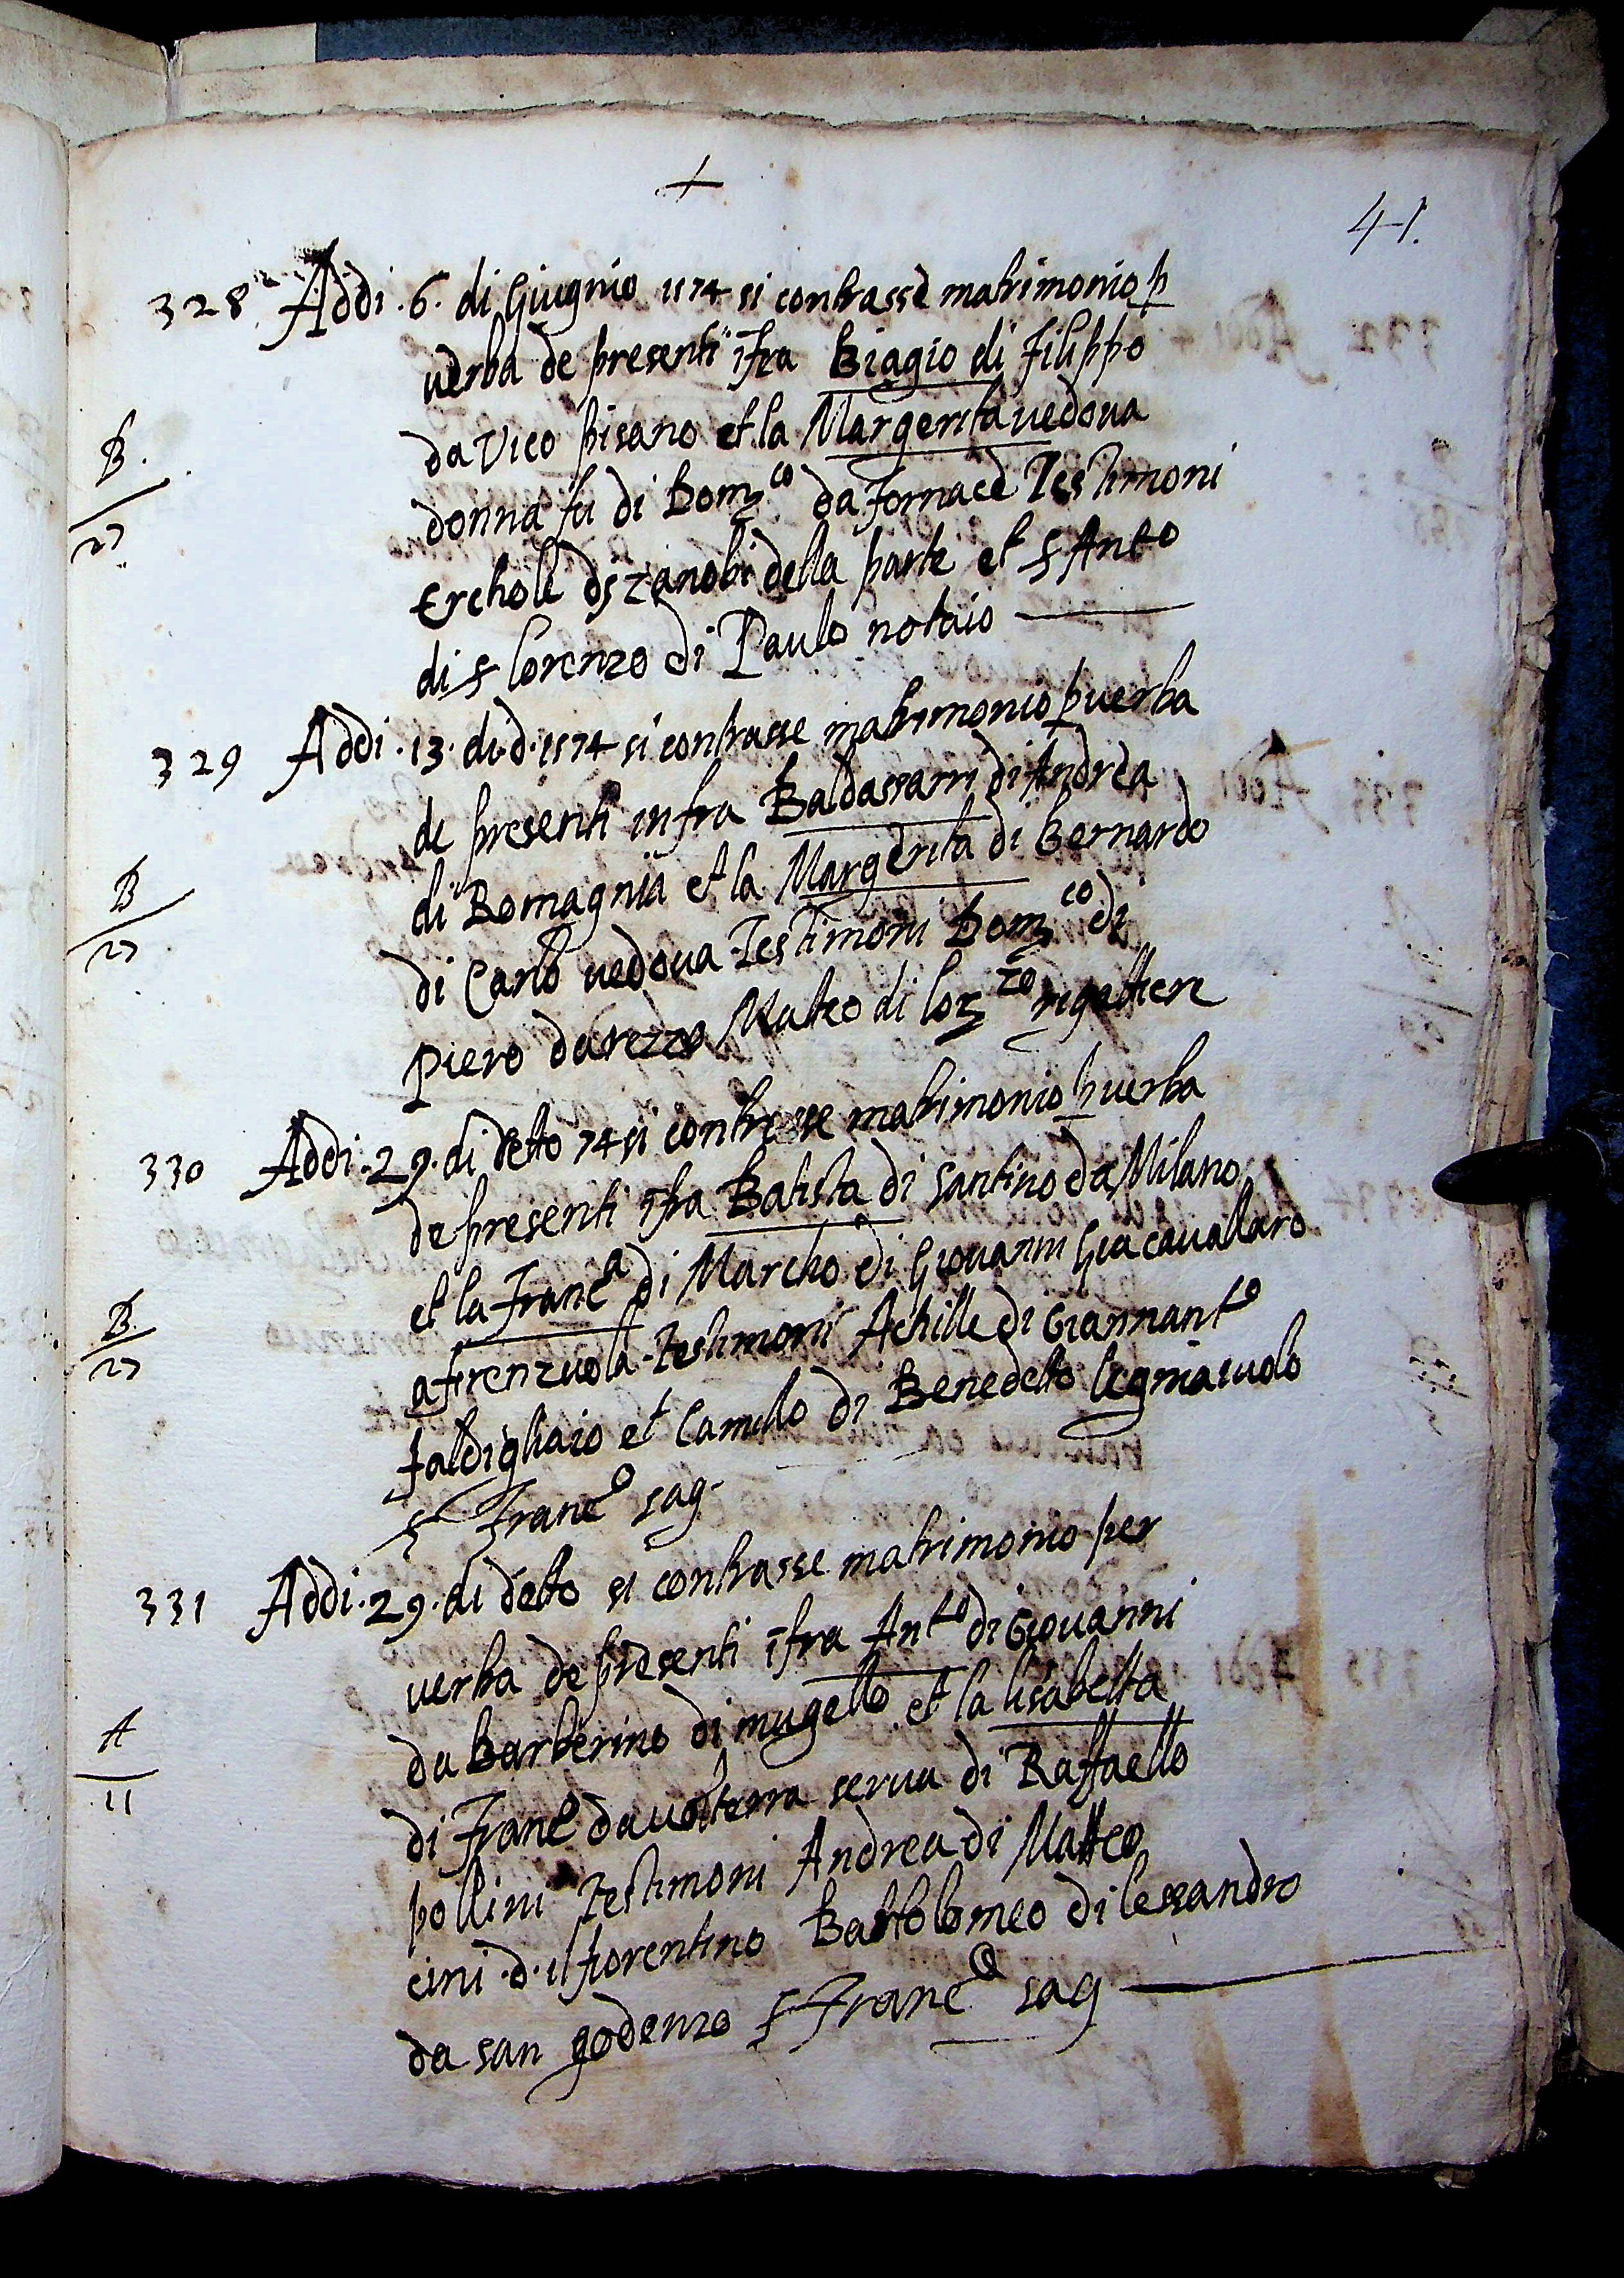 +
41.
328 Addi .6. di Giugnio 1574 si contrasse matrimonio p
verba de presenti ifra Biagio di Filippo
da Vico pisano et la Margerita vedova
donna fu di Dom.co da Fornace Testimoni
Erchole di zanobi della parte et s Ant.o
di s Lorenzo di Paulo notaio
B.
27
329 Addi .13. di d. 1574 si contrasse matrimonio p verba
de presenti infra Baldassarri di Andrea
di Romagnia et la Margerita di Bernardo
di Carlo vedova Testimoni Dom.co di
piero darezzo Matteo di lor.zo rigattiere
B
27
330 Addi .29. di detto 74 si contrasse matrimonio p verba
de presenti ifra Batista di santino da Milano
et la Franc.a di Marcho di Giovanni Gia cavallaro
a firenzuola Testimoni Achille di Giannant.o
faldigliaio et Camillo di Benedetto legniaiuolo
s Franc.o sag.
B.
27
331 Addi .29. di detto si contrasse matrimonio per
verba de presenti ifra Ant.o di Giovanni
da Barberino di mugello et la lisabetta
di Franc.o da volterra serva di Raffaello
pollini Testimoni Andrea di Matteo
cini .d. il fiorentino Bartolomeo di lessandro
da san godenzo s Franc.o sag
A
11